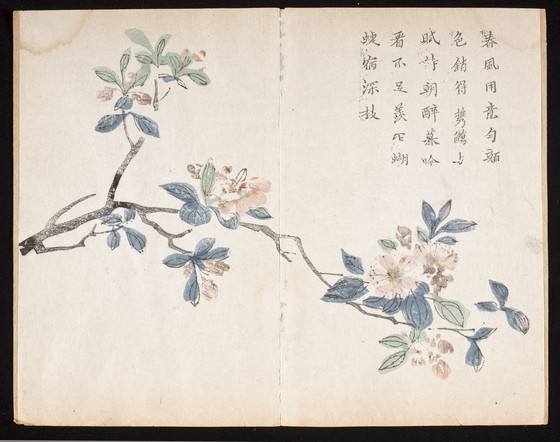 春風用意勻顏
色銷得攜觴与
賦詩朝醉暮吟
看不足羨他蝴
蝶宿深枝